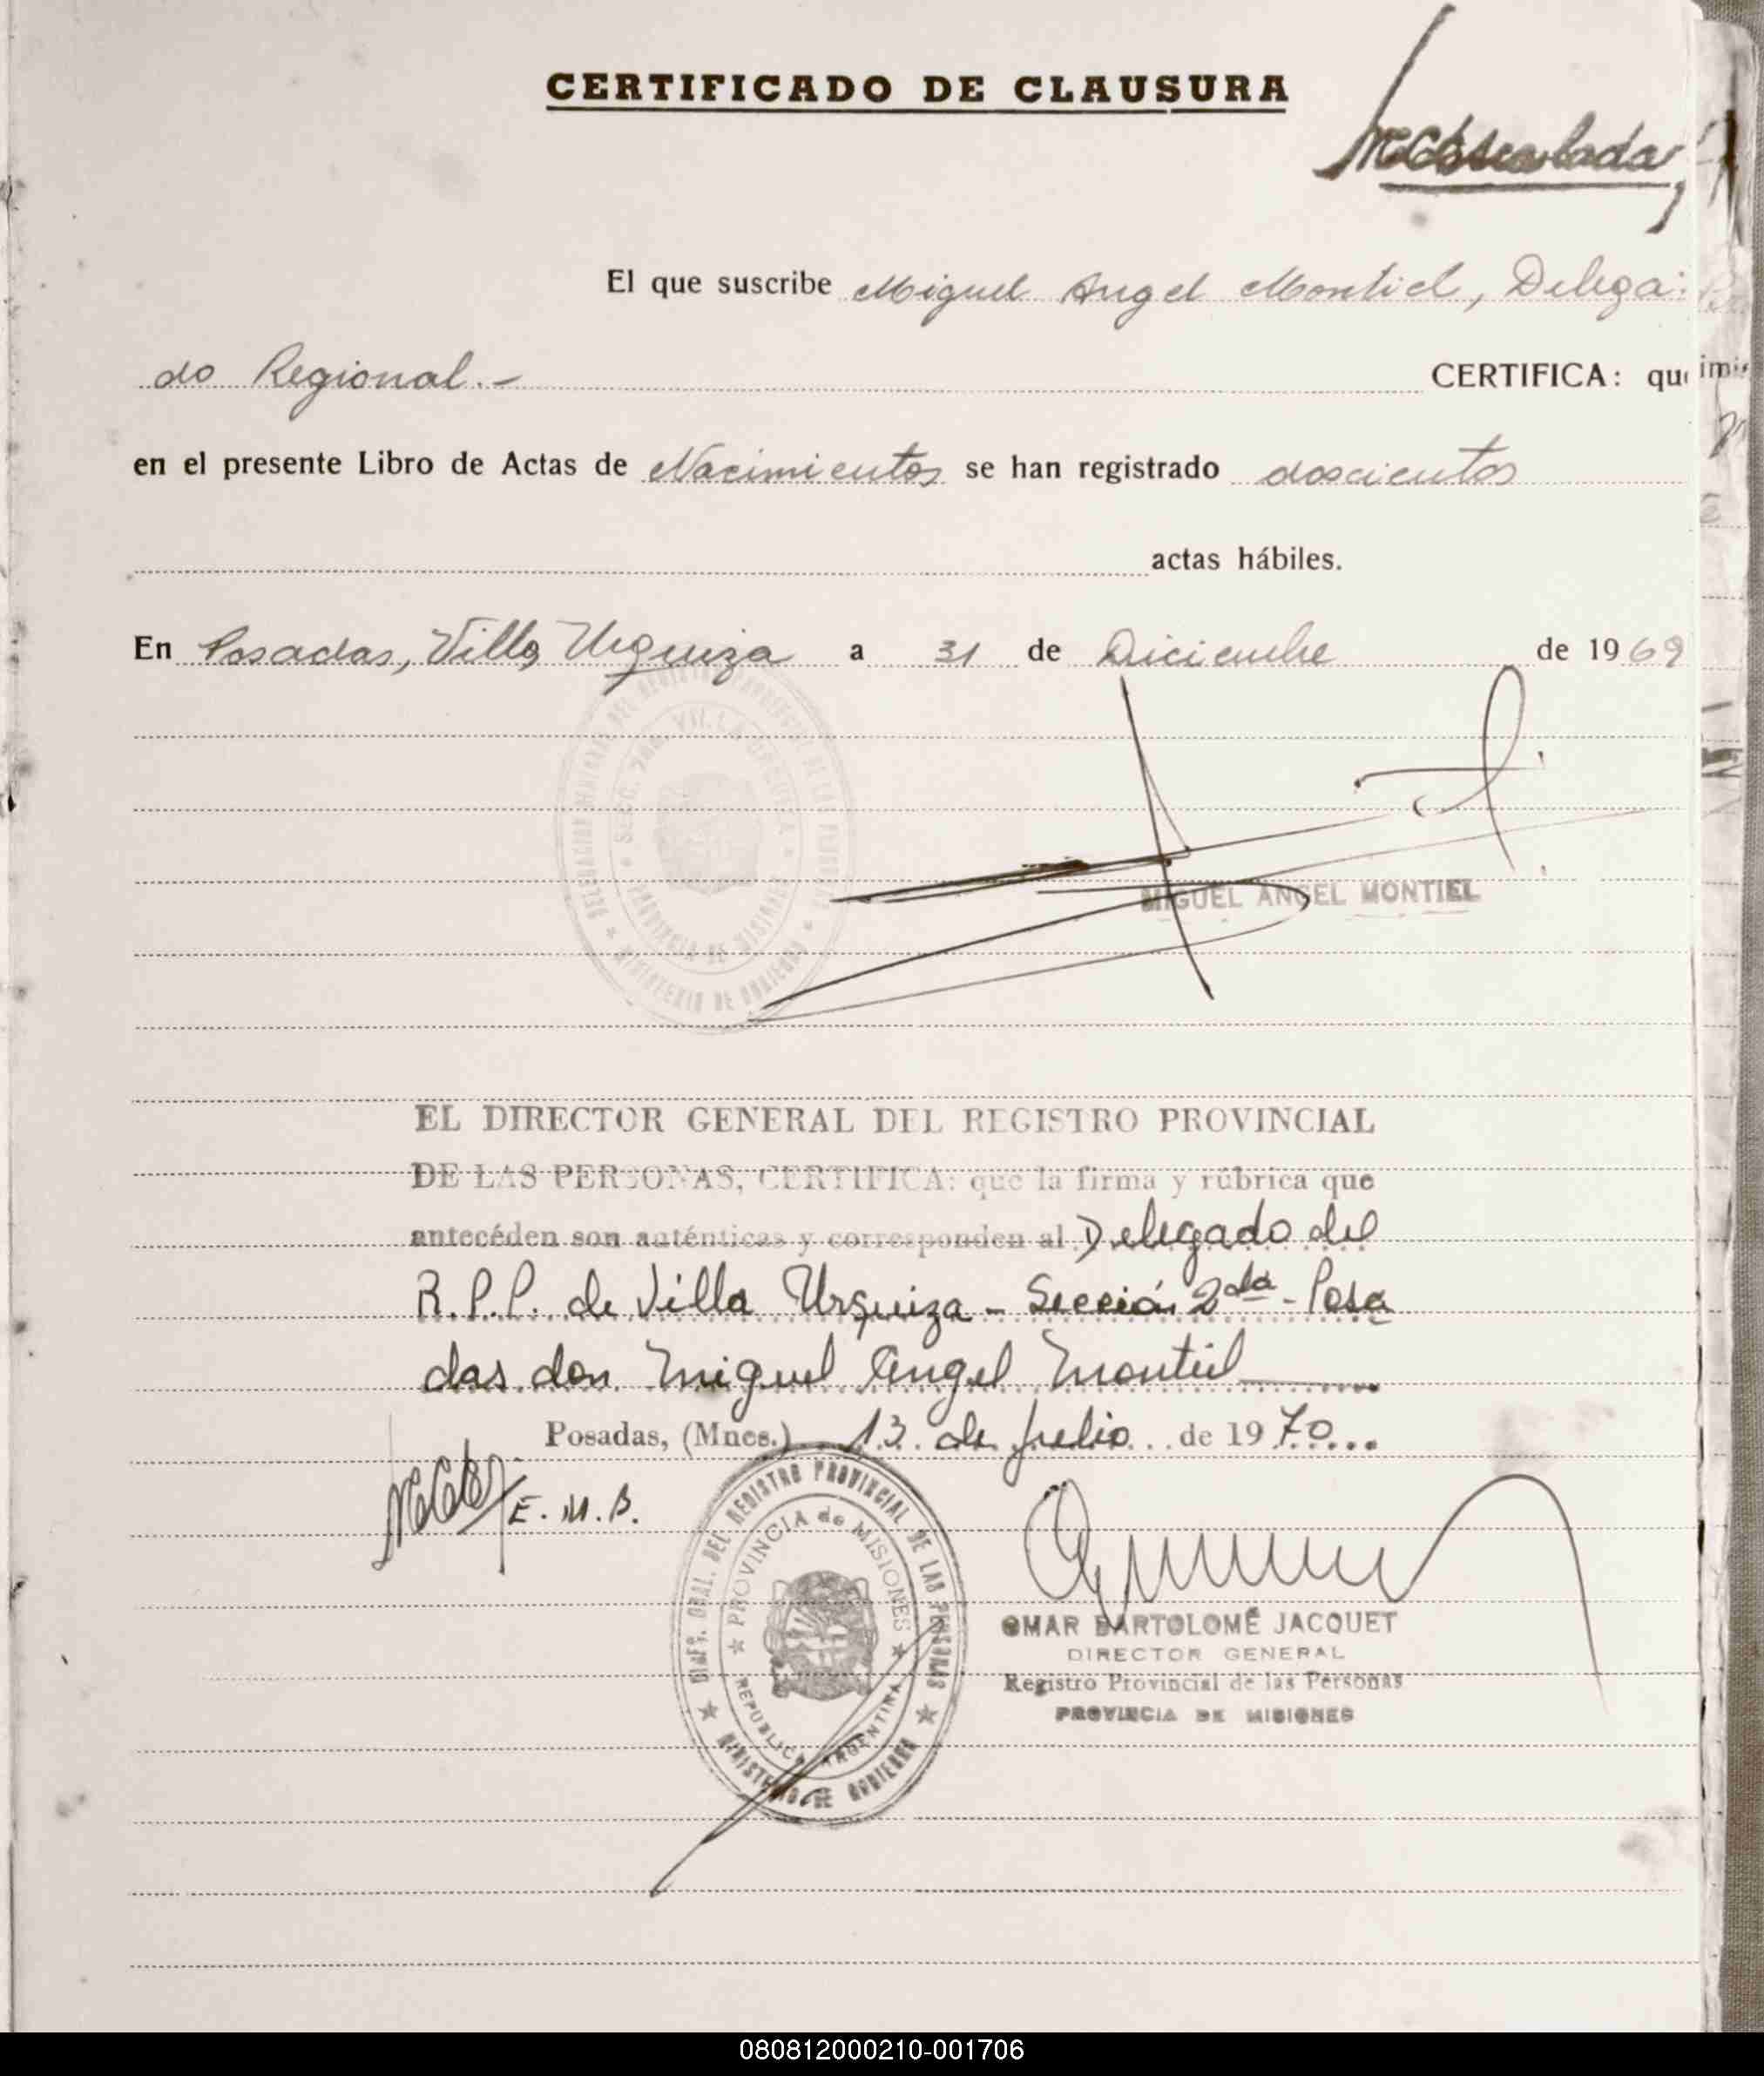 CERTIFICADO DE CLAUSURA
El que suscribe Miguel Angel Montiel, Delega-
do Regional.- CERTIFICA: que
en el presente Libro de Actas de Nacimientos se han registrado doscientos
actas hábiles.
En Posadas, Villa Urquiza a 31 de Diciembre de 1969
MIGUEL ANGEL MONTIEL
EL DIRECTOR GENERAL DEL REGISTRO PROVINCIAL
DE LAS PERSONAS, CERTIFICA: que la firma y rúbrica que
antecéden son auténticas y corresponden al Delegado del
R.P.P. de Villa Urquiza - Sección 2da - Posa
das don Miguel Angel Montiel
Posadas, (Mnes.) 13 de Julio de 1970
E. M. B.
DIREC. GRAL. DEL REGISTRO PROVINCIAL DE LAS PERSONAS
PROVINCIA de MISIONES
REPUBLICA ARGENTINA
MINISTERIO DE GOBIERNO
OMAR BARTOLOMÉ JACQUET
DIRECTOR GENERAL
Registro Provincial de las Personas
PROVINCIA DE MISIONES
080812000210-001706